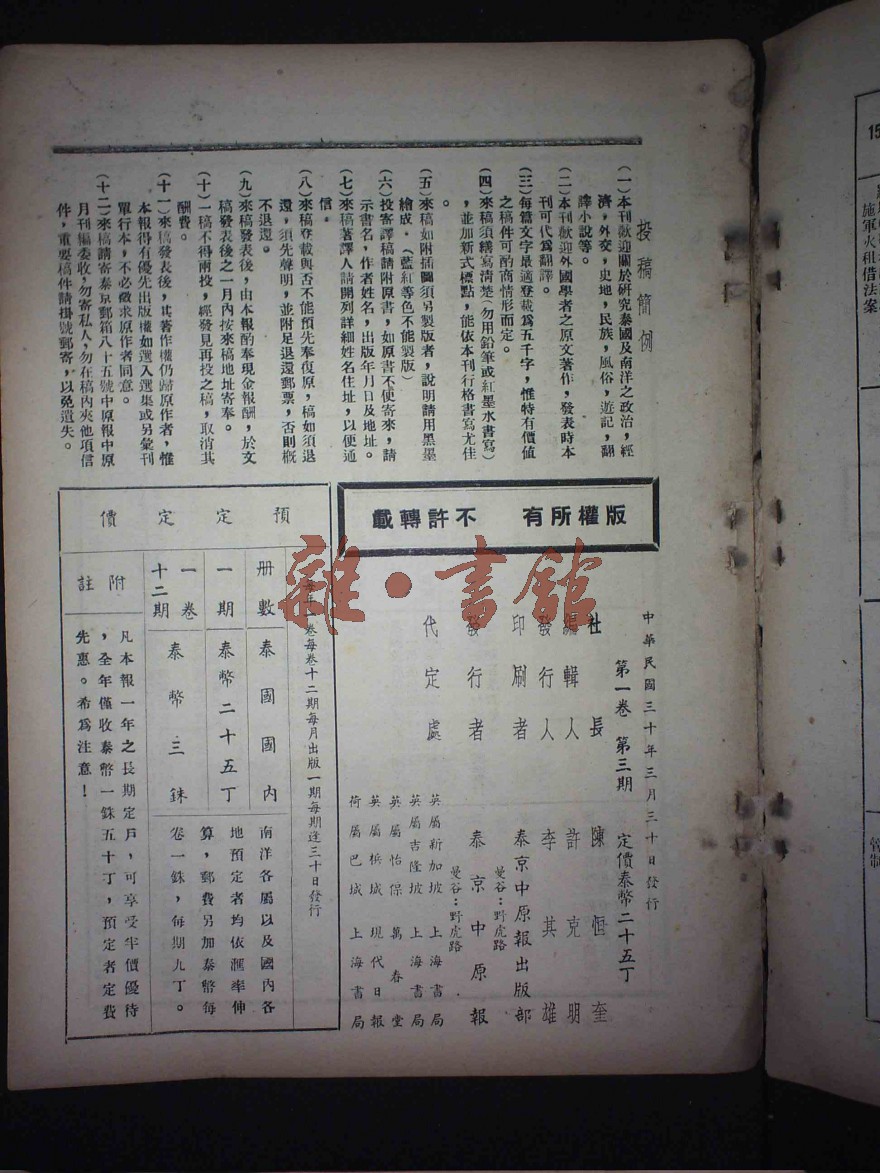 投稿簡例
(一)本刊歡迎關於研究泰國及南洋之政治,經
濟,外交,史地,民族,風俗,遊記,翻
譯小說等。
(二)本刊歡迎外國學者之原文著作,發表時本
刊可代爲翻譯。
(三)每篇文字最適登載爲五千字,惟特有價值
之稿件可酌商情形而定。
(四)來稿須繕寫清楚(勿用鉛筆或紅墨水書寫)
,並加新式標點,能依本刊行格書寫尤佳
。
(五)來稿如附插圖須另製版者,說明請用黑墨
繪成。(藍紅等色不能製版)
(六)投寄譯稿請附原書,如原書不便寄來,請
示書名,作者姓名,出版年月日及地址。
(七)來稿著譯人請開列詳細姓名住址,以便通
信。
(八)來稿登載與否不能預先奉復原,稿如須退
還,須先聲明,並附足退還郵票,否則概
不退還。
(九)來稿發表後,由本報酌奉現金報酬,於文
稿發表後之一月內按來稿地址寄奉。
(十)一稿不得兩投,經發見再投之稿,取消其
酬費。
(十一)來稿發表後,其著作權仍歸原作者,惟
本報得有優先出版權如選入選集或另彙刊
單行本,不必徵求原作者同意。
(十二)來稿請寄泰京郵箱八十五號中原報中原
月刊編委收,勿寄私人,勿在稿內夾他項信
件,重要稿件請掛號郵寄,以免遺失。
版權所有 不許轉載
中華民國三十年三月三十日發行
第一卷 第三期 定價泰幣二十五丁
社長 陳恒奎
編輯人 許克明
發行人 李其雄
印刷者 泰京中原報出版部
曼谷:野虎路
發行者 泰京中原報
曼谷:野虎路
代定處
英屬新加坡 上海書局
英屬吉隆坡 上海書局
英屬怡保 萬春堂
英屬檳城 現代日報
荷屬巴城 上海書局
預定定價
每年一卷每卷十二期每月出版一期每期逢三十日發行
冊數 泰國國內 南洋各屬以及國內各
地預定者均依滙率伸
算,郵費另加泰幣每
卷一銖,每期九丁。
一期 泰幣二十五丁
一卷
十二期 泰幣三銖
附註
凡本報一年之長期定戶,可享受半價優待
,全年僅收泰幣一銖五十丁,預定者定費
先惠。希爲注意!
雜·書館
15
施軍火租借法案
管制